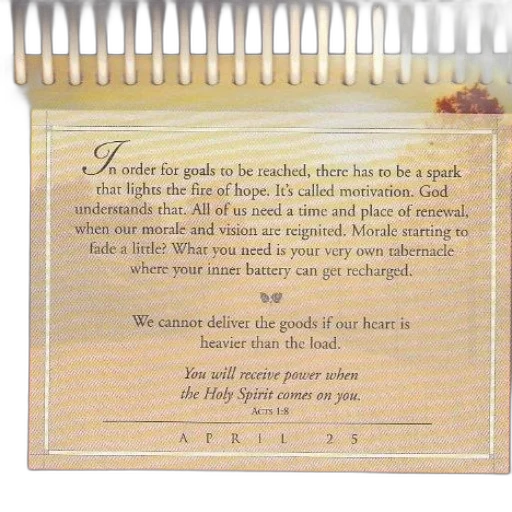 In order for goals to be reached, there has to be a spark
that lights the fire of hope. It's called motivation. God
understands that. All of us need a time and place of renewal,
when our morale and vision are reignited. Morale starting to
fade a little? What you need is your very own tabernacle
where your inner battery can get recharged.
We cannot deliver the goods if our heart is
heavier than the load.
You will receive power when
the Holy Spirit comes on you.
Acts 1:8
APRIL 25